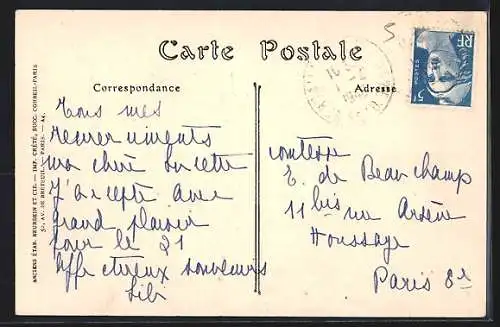 Carte Postale
Correspondance
Adresse
Tous mes
remerciements
ma chère
J'accepte avec
grand plaisir
pour le 21
Affectueux souvenirs
Lili
comtesse
E. de Beauchamp
11 bis rue Arsène
Houssaye
Paris 8e
ANCIENS ÉTAB. NEURDEIN ET CIE. — IMP. CRÉTÉ, SUCC. CORBEIL-PARIS
52, AV. DE BRETEUIL, PARIS.
RF
POSTES
5F